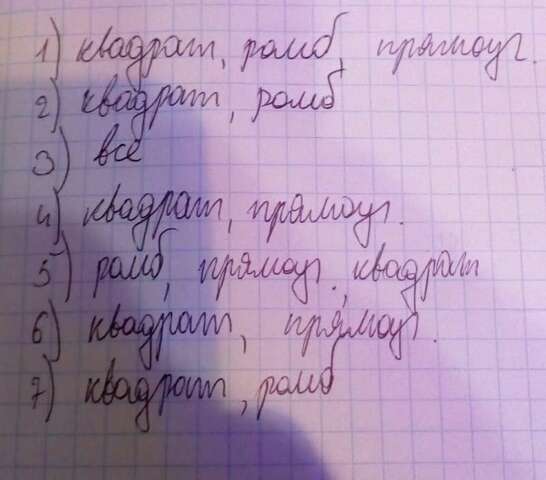 1) квадрат, ромб, прямоуг.
2) квадрат, ромб
3) все
4) квадрат, прямоуг.
5) ромб, прямоуг., квадрат
6) квадрат, прямоуг.
7) квадрат, ромб